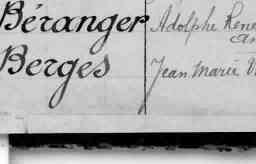 Béranger Adolphe René
An
Berges Jean Marie V